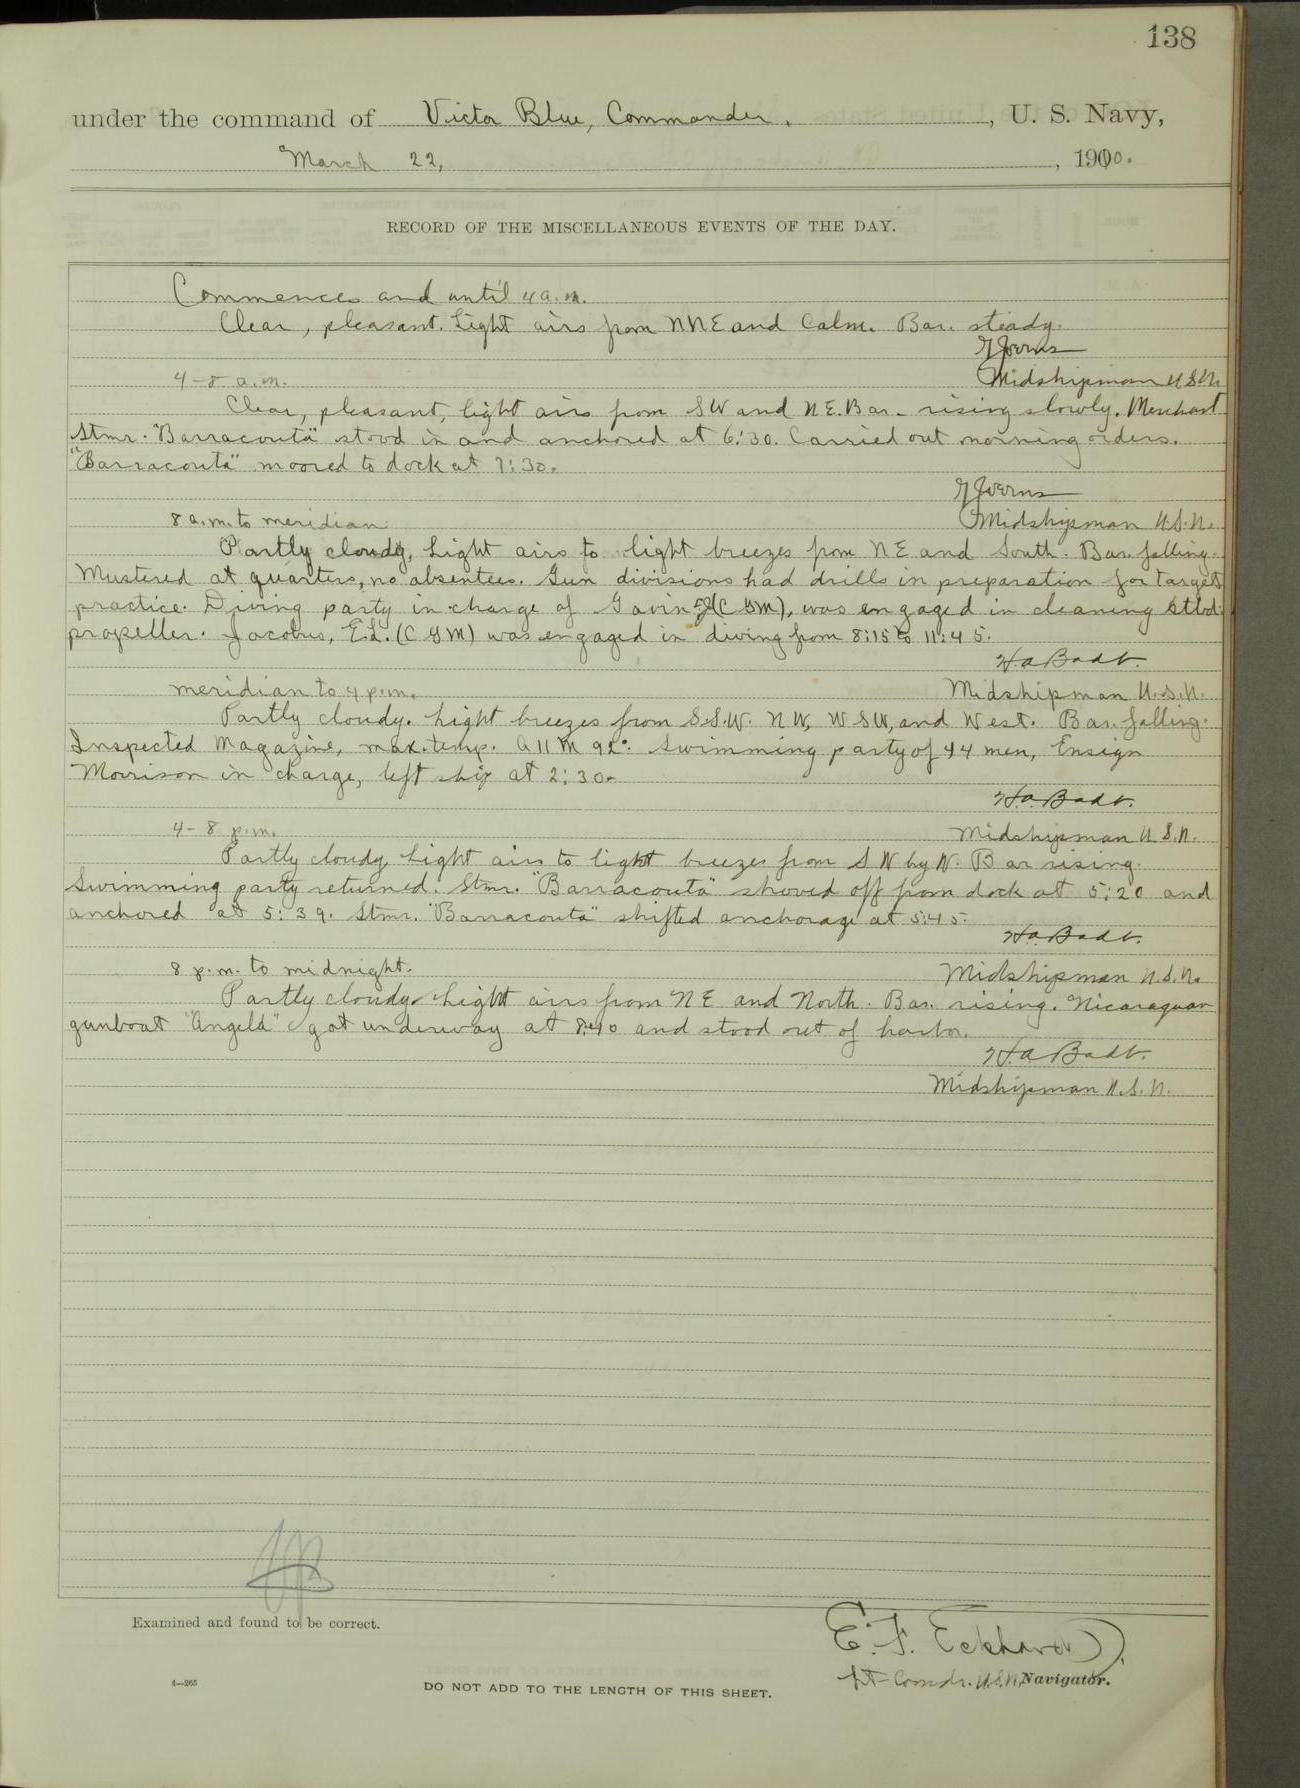 138
under the command of Victor Blue, Commander, U. S. Navy,
March 22, 1910.
RECORD OF THE MISCELLANEOUS EVENTS OF THE DAY.
Commences and until 4 a.m.
Clear, pleasant. Light airs from NNE and Calm. Bar. steady.
4-8 a.m.
Midshipman U.S.N.
Clear, pleasant, light airs from SW and NE. Bar. rising slowly. Merchant
Stmr. "Barracouta" stood in and anchored at 6:30. Carried out morning orders.
"Barracouta" moored to dock at 7:30.
8 a.m. to meridian
Midshipman U.S.N.
Partly cloudy, Light airs to light breezes from NE and South. Bar. falling.
Mustered at quarters, no absentees. Gun divisions had drills in preparation for target
practice. Diving party in charge of Gavin (C GM), was engaged in cleaning stbd.
propeller. Jacobus, E.L. (C GM) was engaged in diving from 8:15 to 11:45.
H.A. Badt.
meridian to 4 p.m.
Midshipman U.S.N.
Partly cloudy. Light breezes from S.S.W. NW, WSW, and West. Bar. falling.
Inspected Magazine, max. temp. A 11 M 92°. Swimming party of 44 men, Ensign
Morrison in charge, left ship at 2:30.
H.A. Badt.
4-8 p.m.
Midshipman U.S.N.
Partly cloudy Light airs to light breezes from SW by W. Bar rising.
Swimming party returned. Stmr. "Barracouta" shoved off from dock at 5:20 and
anchored at 5:39. Stmr. "Barracouta" shifted anchorage at 5:45.
H.A. Badt.
8 p.m. to midnight.
Midshipman U.S.N.
Partly cloudy. Light airs from NE and North. Bar. rising. Nicaraguan
gunboat "Angela" got underway at 8:40 and stood out of harbor.
H.A. Badt.
Midshipman U.S.N.
Examined and found to be correct.
E. F. Eckhardt.
Lt-Comdr. U.S.N. Navigator.
4—265
DO NOT ADD TO THE LENGTH OF THIS SHEET.